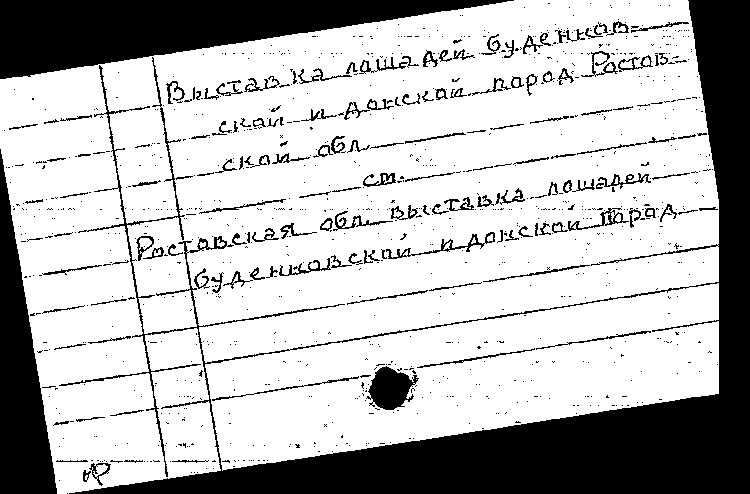 Выставка лошадей буденнов-
ской и донской пород Ростов-
ской обл.
см.
Ростовская обл. выставка лошадей
буденновской и донской пород